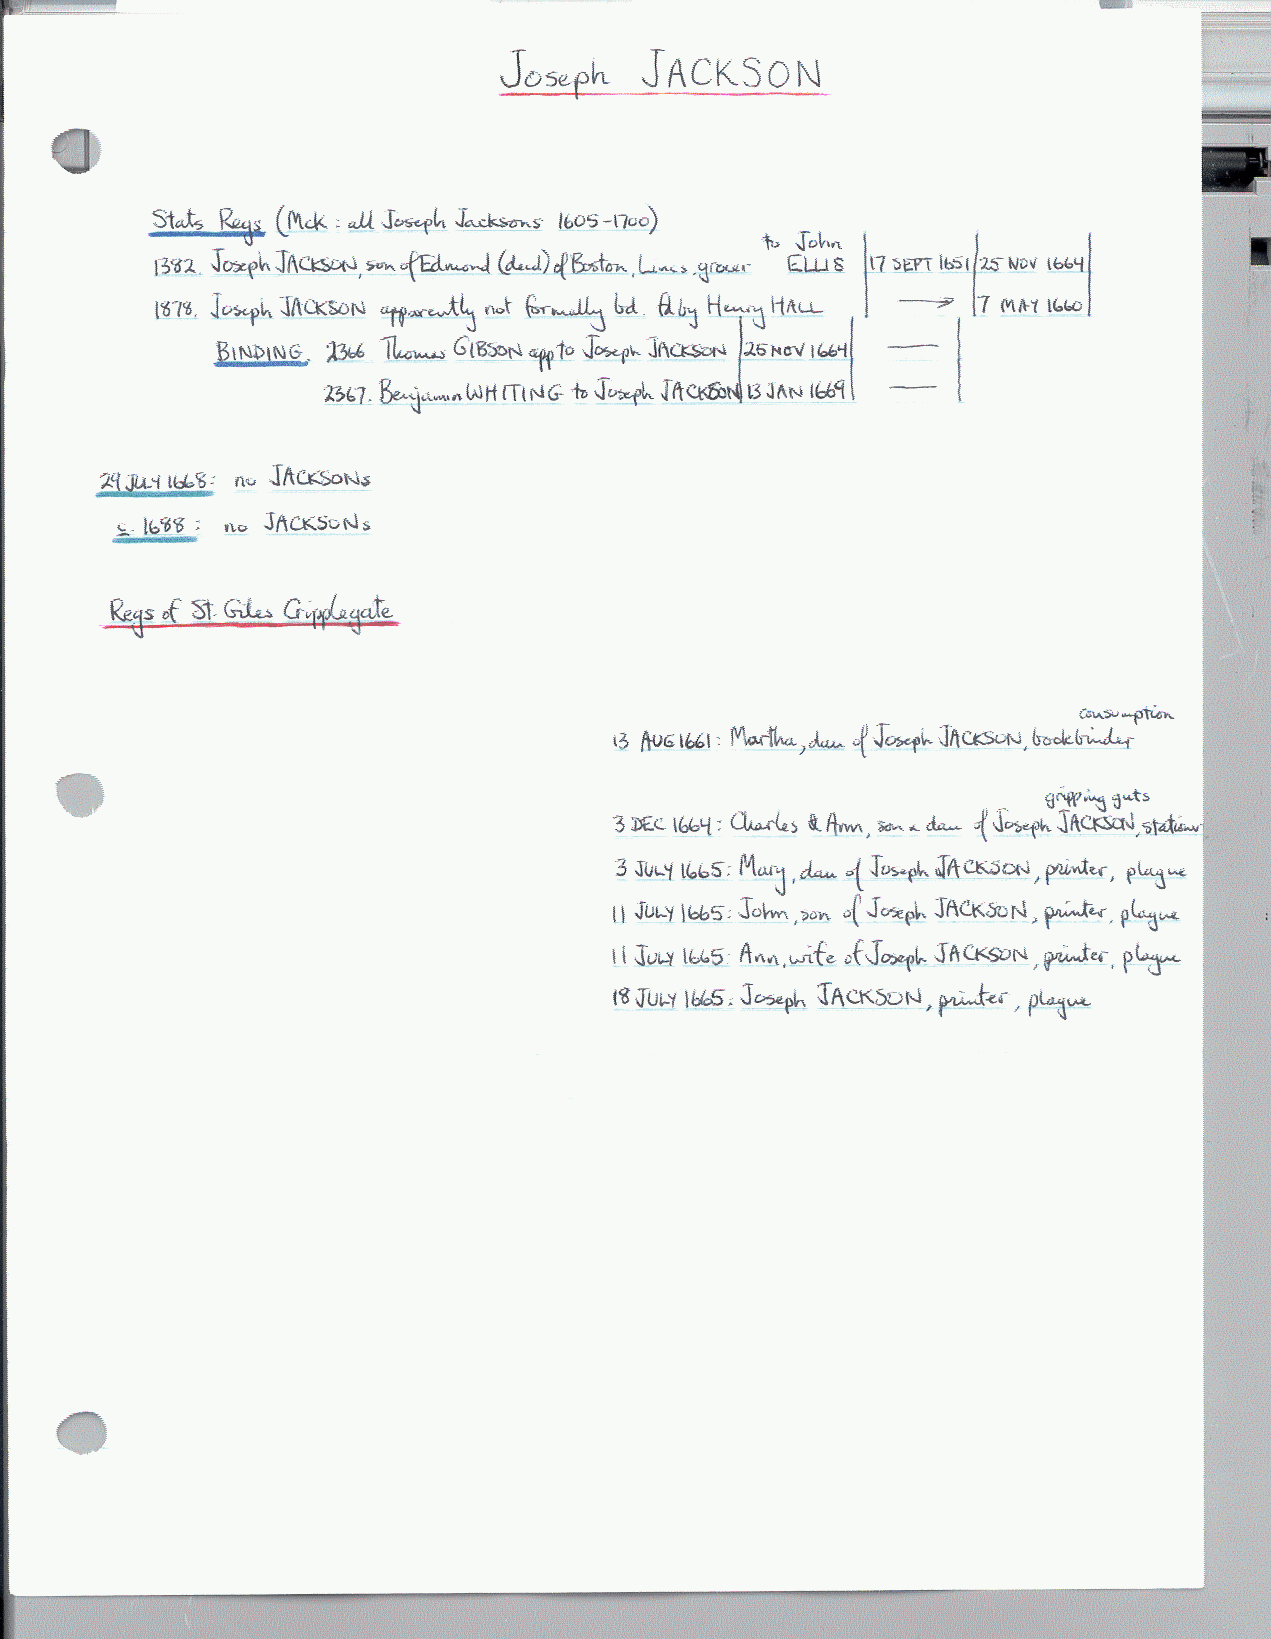 Joseph JACKSON
Stats Regs (McK: all Joseph Jacksons 1605-1700)
1382. Joseph JACKSON, son of Edmond (decd) of Boston, Lincs, grocer to John ELLIS 17 SEPT 1651 25 NOV 1664
1878. Joseph JACKSON apparently not formally bd. fd by Henry HALL → 7 MAY 1660
BINDING. 2366 Thomas GIBSON app to Joseph JACKSON 25 NOV 1664 —
2367. Benjamin WHITING to Joseph JACKSON 13 JAN 1669 —
29 JULY 1668: no JACKSONs
c. 1688: no JACKSONs
Regs of St. Giles Cripplegate
consumption
13 AUG 1661: Martha, dau of Joseph JACKSON, bookbinder
gripping guts
3 DEC 1664: Charles & Ann, son & dau of Joseph JACKSON, stationer
3 JULY 1665: Mary, dau of Joseph JACKSON, printer, plague
11 JULY 1665: John, son of Joseph JACKSON, printer, plague
11 JULY 1665: Ann, wife of Joseph JACKSON, printer, plague
18 JULY 1665: Joseph JACKSON, printer, plague